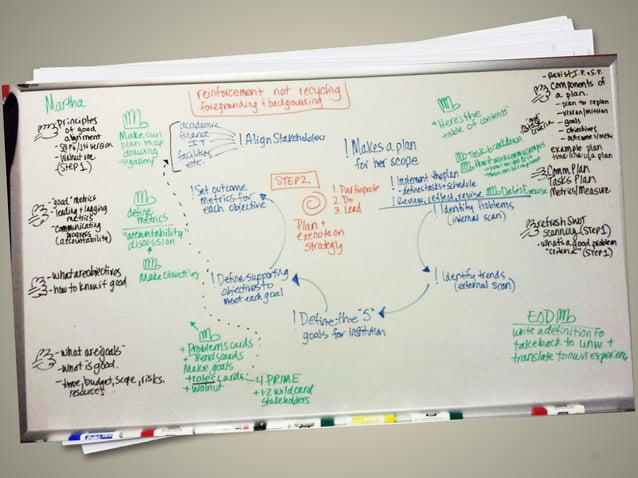 Martha
reinforcement not recycling
foregrounding + backgrounding
Principles
of good
alignment
(STEP 1)
Make own
plan map
drawing
→gallery
academic
finance
IT
facilities
etc.
! Align Stakeholders
! Makes a plan
for her scope
"Here's the
table of contents"
Task breakdown
- Revisit I.P. + S.P.
Components of
a plan.
- plan to replan
- vision/mission
- goals
- objectives
- outcomes/metr
example plan
timeline of a plan
Comm Plan
Tasks Plan
Metrics/Measure
"good" metrics
leading + lagging
metrics
-communicating
progress
(accountability)
define
metrics
"accountability"
discussion
Make Objectives
! Set outcome
metrics for
each objective
STEP 2
Plan +
execute on
strategy
1. Participate
2. Do
3. Lead
! Implement the plan
- defines tasks + schedule
! Review, reflect, revise
! Identify Problems
(internal scan)
refresh SWOT
scanning (Step 1)
- what's a good problem
"criteria" (Step 1)
- what are objectives
- how to know if good
! Define supporting
objectives to
meet each goal
! Identify trends
(external scan)
! Define the "5"
goals for institution
- what are goals
- what is good.
- time, budget, scope, risks.
resources
+ Problems cards
+ Trends cards
Make goals
+ roles cards
+ walnut
- 4 PRIME
+ 1-2 wildcard
stakeholders
EOD
write a definition
take back to univ +
translate to own experien